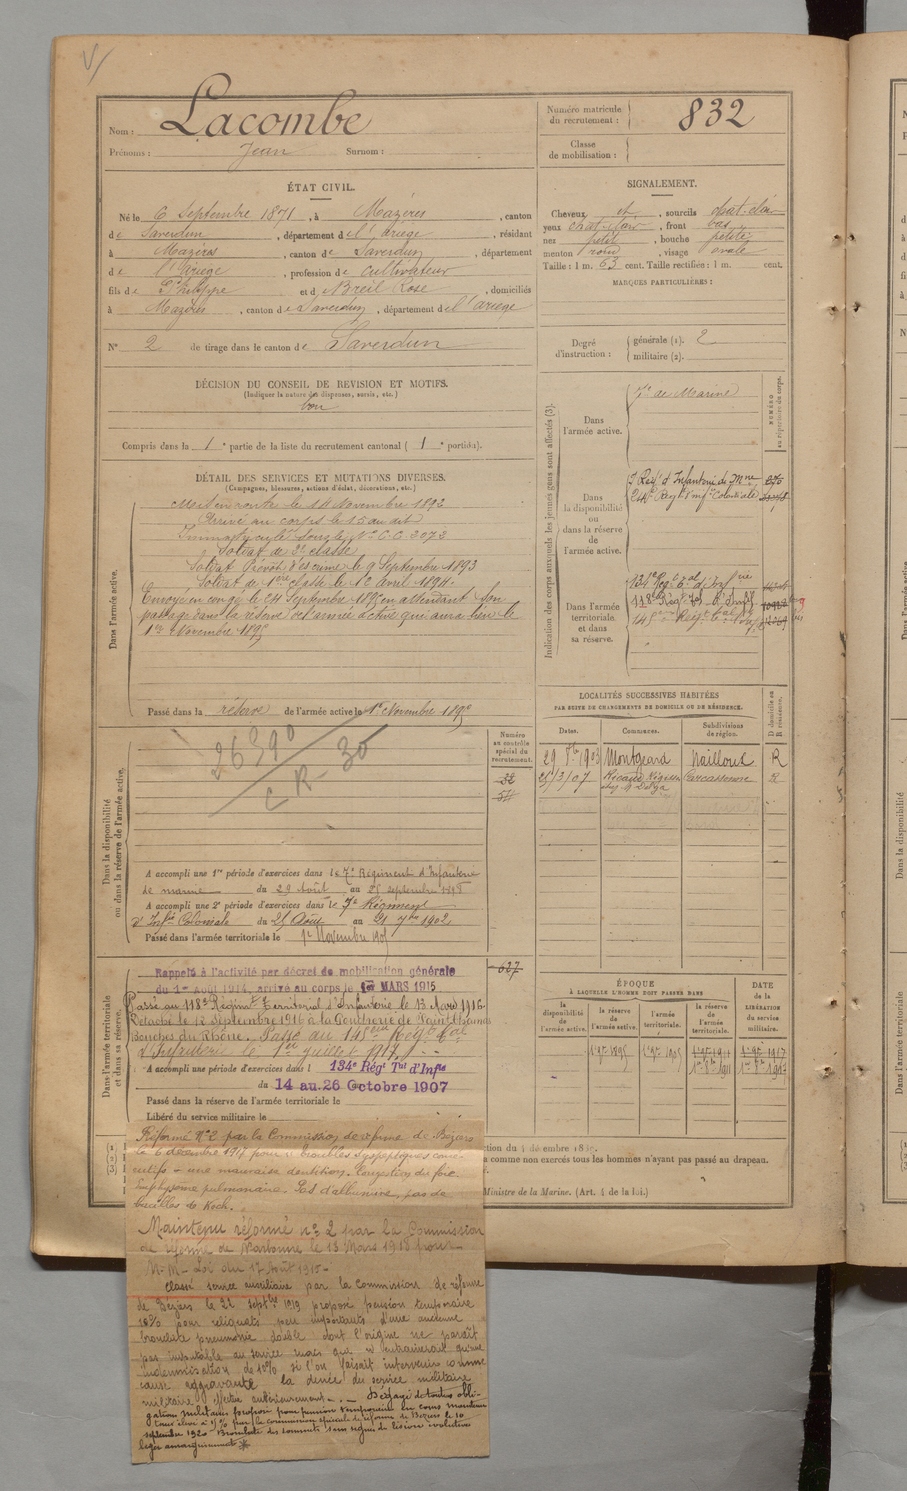 Nom : Lacombe
Prénoms : Jean Surnom :
Numéro matricule du recrutement : 832
Classe de mobilisation :
ÉTAT CIVIL.
Né le 6 Septembre 1871, à Mazères, canton
de Saverdun, département de l'Ariège, résidant
à Mazères, canton de Saverdun, département
de l'Ariège, profession de cultivateur
fils de Philippe et de Breil Rose, domiciliés
à Mazères, canton de Saverdun, département de l'Ariège
N° 2 de tirage dans le canton de Saverdun
SIGNALEMENT.
Cheveux et, sourcils chat. clair
yeux chat. clair, front bas
nez petit, bouche petite
menton rond, visage ovale
Taille : 1 m. 63 cent. Taille rectifiée : 1 m. cent.
MARQUES PARTICULIÈRES :
Degré d'instruction : générale (1). 2
militaire (2).
DÉCISION DU CONSEIL DE REVISION ET MOTIFS.
(Indiquer la nature des dispenses, sursis, etc.)
bon
Compris dans la 1e partie de la liste du recrutement cantonal (1e portion).
DÉTAIL DES SERVICES ET MUTATIONS DIVERSES.
(Campagnes, blessures, actions d'éclat, décorations, etc.)
Dans l'armée active.
Mis en route le 14 Novembre 1892
Arrivé au corps le 15 au dit
Immatriculé sous le N° C.C. 3072
Soldat de 2e classe
Soldat le 9 Septembre 1893
Soldat de 1ère classe le 12 avril 1894.
Envoyé en congé le 24 Septembre 1895 en attendant son
passage dans la réserve de l'armée active qui aura lieu le
1er Novembre 1895
Passé dans la réserve de l'armée active le 1er Novembre 1895
Indication des corps auxquels les jeunes gens sont affectés (3).
NUMÉRO au répertoire du corps.
Dans l'armée active.
7e de Marine
Dans la disponibilité ou dans la réserve de l'armée active.
7 Regt d'Infanterie de Mne
24e Regt d'Infie Coloniale
Dans l'armée territoriale et dans sa réserve.
134e Reg. tal d'Infrie
118e Régt tal d'Infie
145e Regt tal
Dans la disponibilité ou dans la réserve de l'armée active.
Numéro au contrôle spécial du recrutement.
32
26390
CR-30
A accompli une 1re période d'exercices dans le 7e Régiment d'Infanterie
de marine du 29 Août au 25 septembre 1898
A accompli une 2e période d'exercices dans le 7e Régiment
d'Infie Coloniale du 25 Août au 21 7bre 1902
Passé dans l'armée territoriale le 1er Novembre 1905
LOCALITÉS SUCCESSIVES HABITÉES
PAR SUITE DE CHANGEMENTS DE DOMICILE OU DE RÉSIDENCE.
Dates. Communes. Subdivisions de région. D domicile ou R résidence.
1903 Montgeard Nailloux R
25/3/07 Ricaud Carcassonne R
Dans l'armée territoriale et dans sa réserve.
627
Rappelé à l'activité par décret de mobilisation générale
du 1er Août 1914, arrivé au corps le 1er MARS 1915
Passé au 118e Régiment Territorial d'Infanterie le 13 Mars 1916
Détaché le 12 Septembre 1916 à la Poudrerie de Saint Chamas
Bouches du Rhône. Passé au 145ème Regt tal
d'Infanterie le 1er juillet 1917.
A accompli une période d'exercices dans l 134e Régt Tal d'Infie
du 14 au 26 Octobre 1907
Passé dans la réserve de l'armée territoriale le
Libéré du service militaire le
ÉPOQUE
À LAQUELLE L'HOMME DOIT PASSER DANS
la disponibilité de l'armée active. la réserve de l'armée active. l'armée territoriale. la réserve de l'armée territoriale.
DATE de la LIBÉRATION du service militaire.
1er 9bre 1895 1er 9bre 1905 1er 9bre 1911 1er 9bre 1917
a comme non exercés tous les hommes n'ayant pas passé au drapeau.
Ministre de la Marine. (Art. 4 de la loi.)
Réformé N°2 par la Commission de réforme de Béziers
le 6 décembre 1917 pour troubles dyspeptiques consé-
cutifs à une mauvaise dentition. Congestion du foie
emphysème pulmonaire. Pas d'albumine, pas de
bacilles de Koch.
Maintenu réformé n° 2 par la Commission
de réforme de Narbonne le 13 Mars 1918 pour
N.M. - Loi du 17 Août 1915 -
Classé service auxiliaire par la commission de réforme
de Béziers le 22 septbre 1919 propose pension temporaire
10% pour reliquats peu importants d'une ancienne
broncho pneumonie double dont l'origine ne paraît
pas imputable au service mais que n'entrainerait qu'une
indemnisation de 10% si l'on faisait intervenir comme
cause aggravante la durée du service militaire
militaire effectué antérieurement. - Dégagé de toutes obli-
gations militaires
par la commission spéciale de réforme de Béziers le 10
septembre 1920 Bronchite des sommets sans signes de lésion évolutive
léger amaigrissement